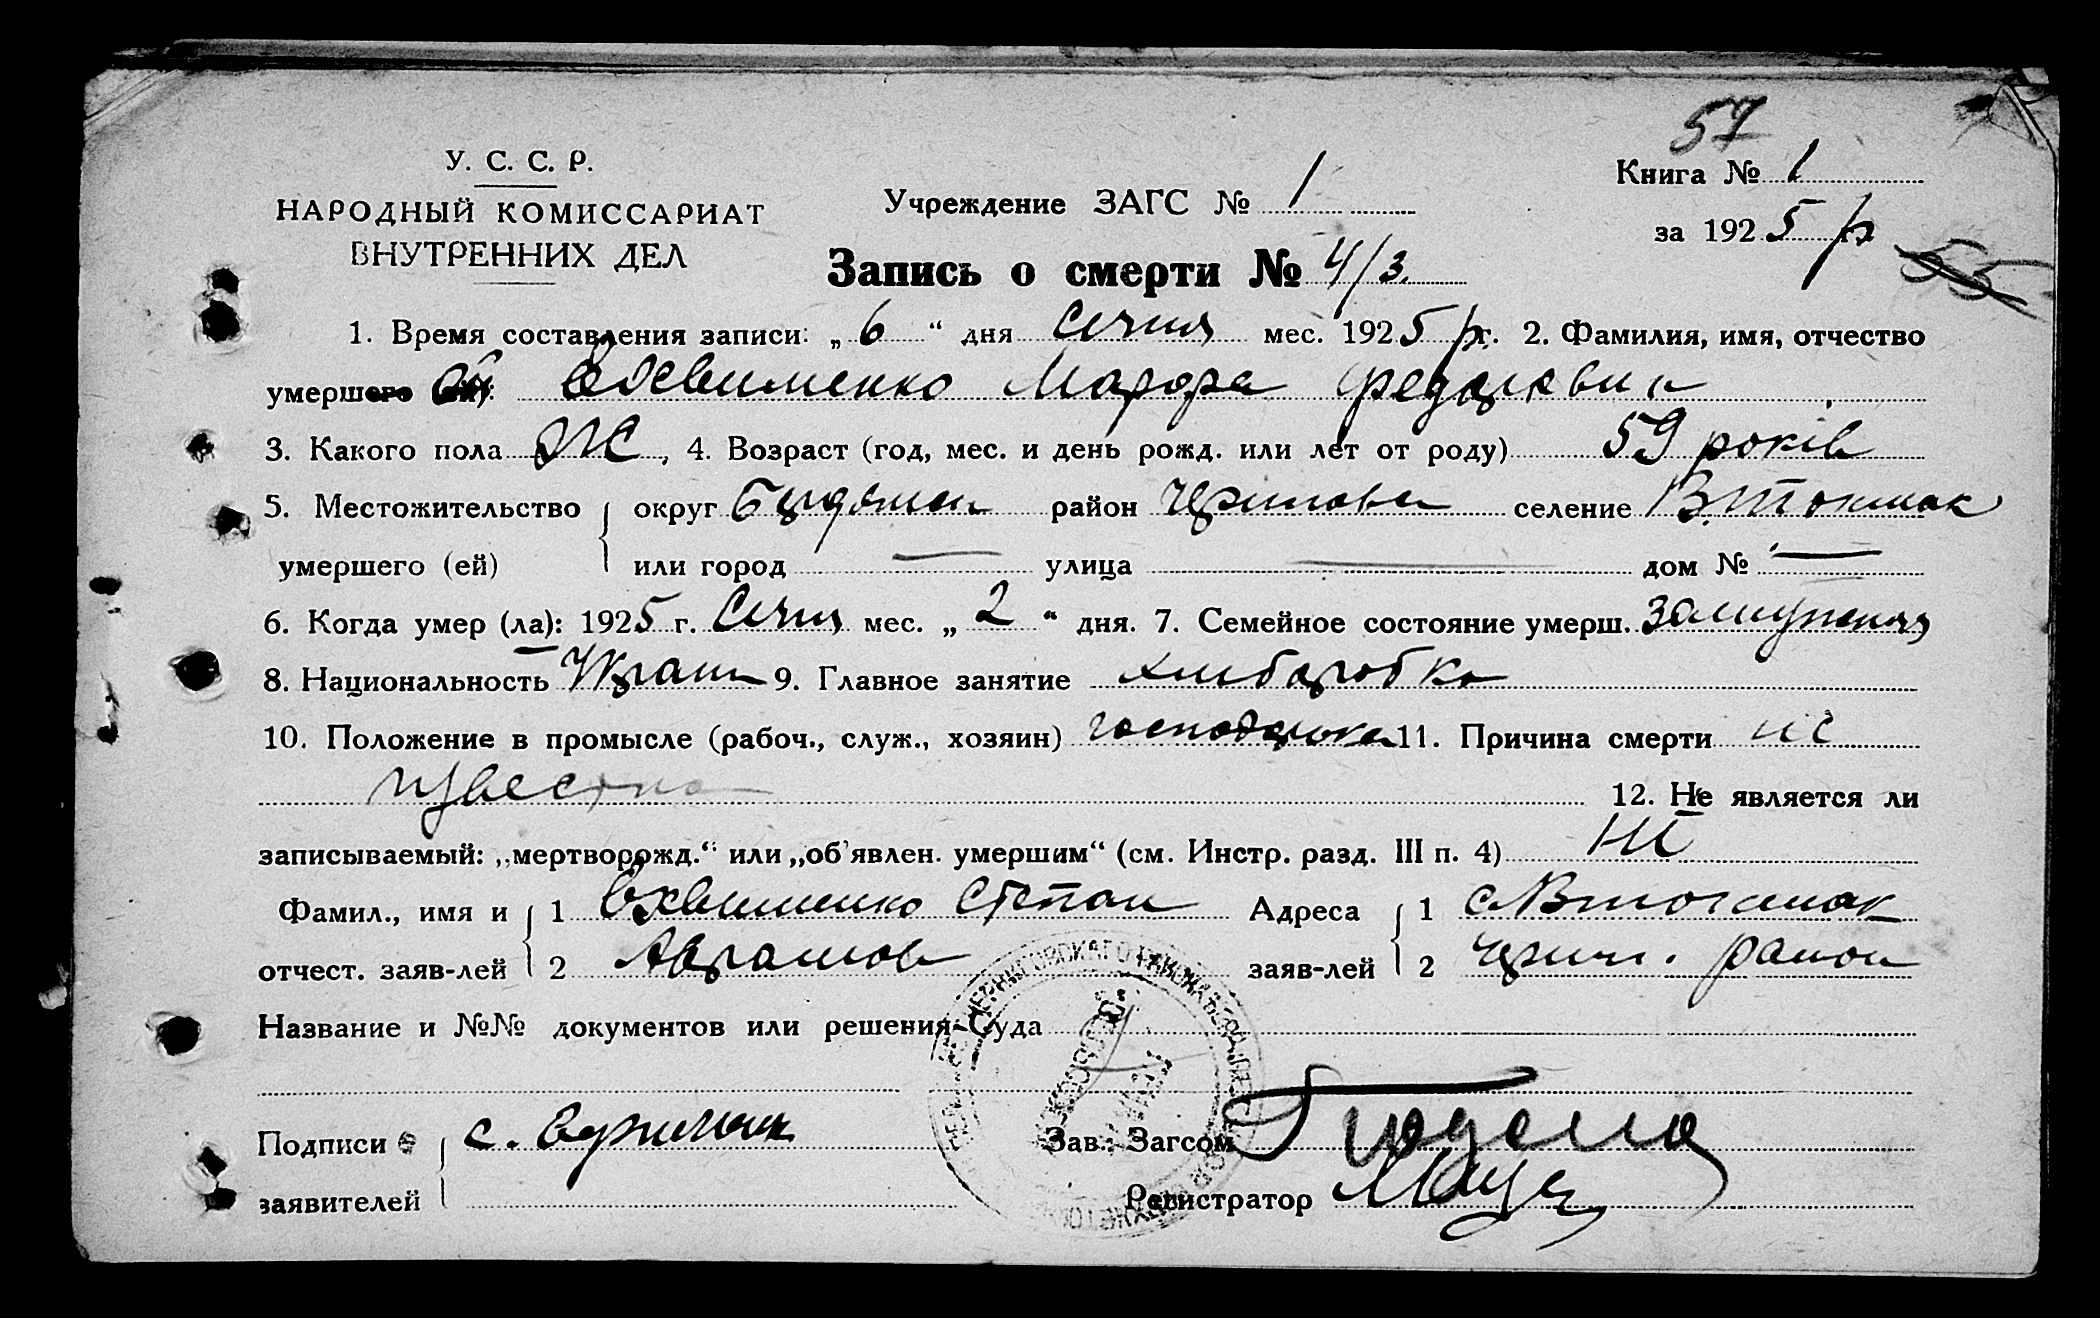 57
У. С. С. Р.
НАРОДНЫЙ КОМИССАРИАТ
ВНУТРЕННИХ ДЕЛ
Учреждение ЗАГС № 1
Книга № 1
за 1925 р
55
Запись о смерти № 4/3.
1. Время составления записи: „ 6 “ дня Січня мес. 1925 р. 2. Фамилия, имя, отчество
умершего Мафра
3. Какого пола Ж, 4. Возраст (год, мес. и день рожд. или лет от роду) 59 років
5. Местожительство округ район селение В.Токмак
умершего (ей) или город — улица — дом № —
6. Когда умер (ла): 1925 г. Січня мес. „ 2 “ дня. 7. Семейное состояние умерш. замужняя
8. Национальность Украин 9. Главное занятие хлиборобка
10. Положение в промысле (рабоч., служ., хозяин) 11. Причина смерти не
известна
12. Не является ли
записываемый: „мертворожд.“ или „об'явлен. умершим“ (см. Инстр. разд. III п. 4) Ні
Фамил., имя и 1 Степан Адреса 1 с. Втокмак
отчест. заяв-лей 2 Аврамов заяв-лей 2 Черниг. район
Название и №№ документов или решения Суда
Подписи с. Зав. Загсом
заявителей Регистратор